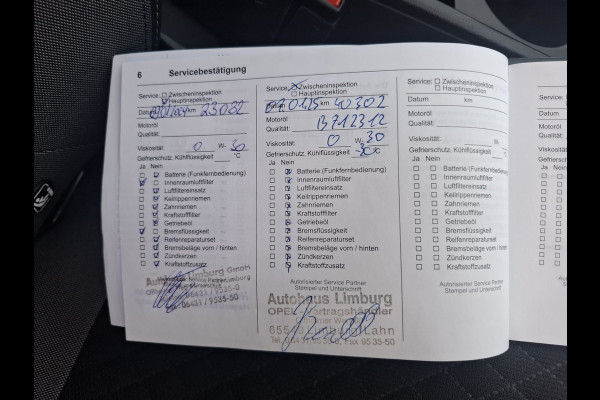 6 Servicebestätigung
Service: Zwischeninspektion
Hauptinspektion
Datum km 23082
Motoröl
Qualität:
Viskosität: 0 W- 30
Gefrierschutz, Kühlflüssigkeit °C
Ja Nein
Batterie (Funkfernbedienung)
Innenraumluftfilter
Luftfiltereinsatz
Keilrippenriemen
Zahnriemen
Kraftstofffilter
Getriebeöl
Bremsflüssigkeit
Reifenreparaturset
Bremsbeläge vorn / hinten
Zündkerzen
Kraftstoffzusatz
Autohaus Limburg GmbH
Service: Zwischeninspektion
Hauptinspektion
Datum km 40302
Motoröl
Qualität: B712312
Viskosität: 0 W- 30
Gefrierschutz, Kühlflüssigkeit -30 °C
Ja Nein
Batterie (Funkfernbedienung)
Innenraumluftfilter
Luftfiltereinsatz
Keilrippenriemen
Zahnriemen
Kraftstofffilter
Getriebeöl
Bremsflüssigkeit
Reifenreparaturset
Bremsbeläge vorn / hinten
Zündkerzen
Kraftstoffzusatz
Autorisierter Service Partner
Stempel und Unterschrift
Autohaus Limburg
OPEL Vertragshändler
Limburg/Lahn
Service: Zwischeninspektion
Hauptinspektion
Datum km
Motoröl
Qualität:
Viskosität: W-
Gefrierschutz, Kühlflüssigkeit °C
Ja Nein
Batterie (Funkfernbedienung)
Innenraumluftfilter
Luftfiltereinsatz
Keilrippenriemen
Zahnriemen
Kraftstofffilter
Getriebeöl
Bremsflüssigkeit
Reifenreparaturset
Bremsbeläge vorn / hinten
Zündkerzen
Kraftstoffzusatz
Autorisierter Service Partner
Stempel und Unterschrift